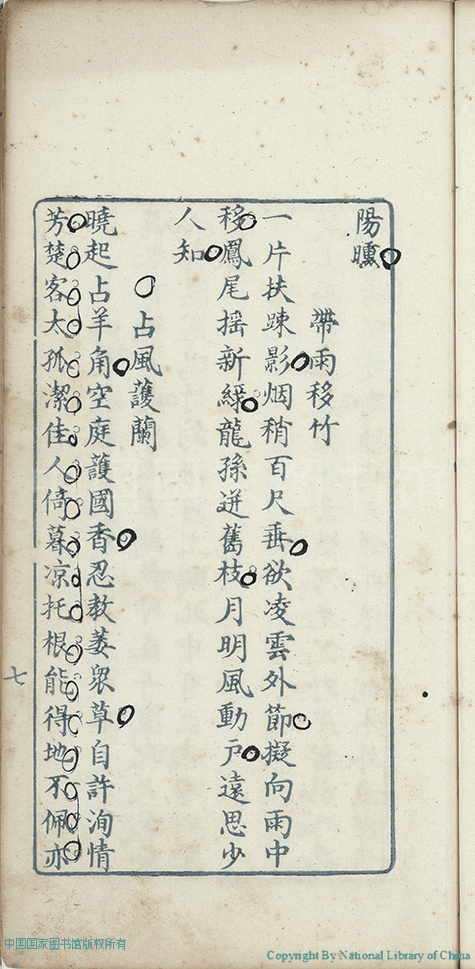 陽曛
帶雨移竹
一片扶踈影烟稍百尺垂欲凌雲外節擬向雨中
移鳳尾摇新綵龍孫迸舊枝月明風動戸遠思少
人知
占風護蘭
曉起占羊角空庭護國香忍教萎眾草自許洵情
芳楚客太孤潔佳人倚暮凉托根能得地不佩亦
七
中国国家图书馆版权所有
Copyright By National Library of China